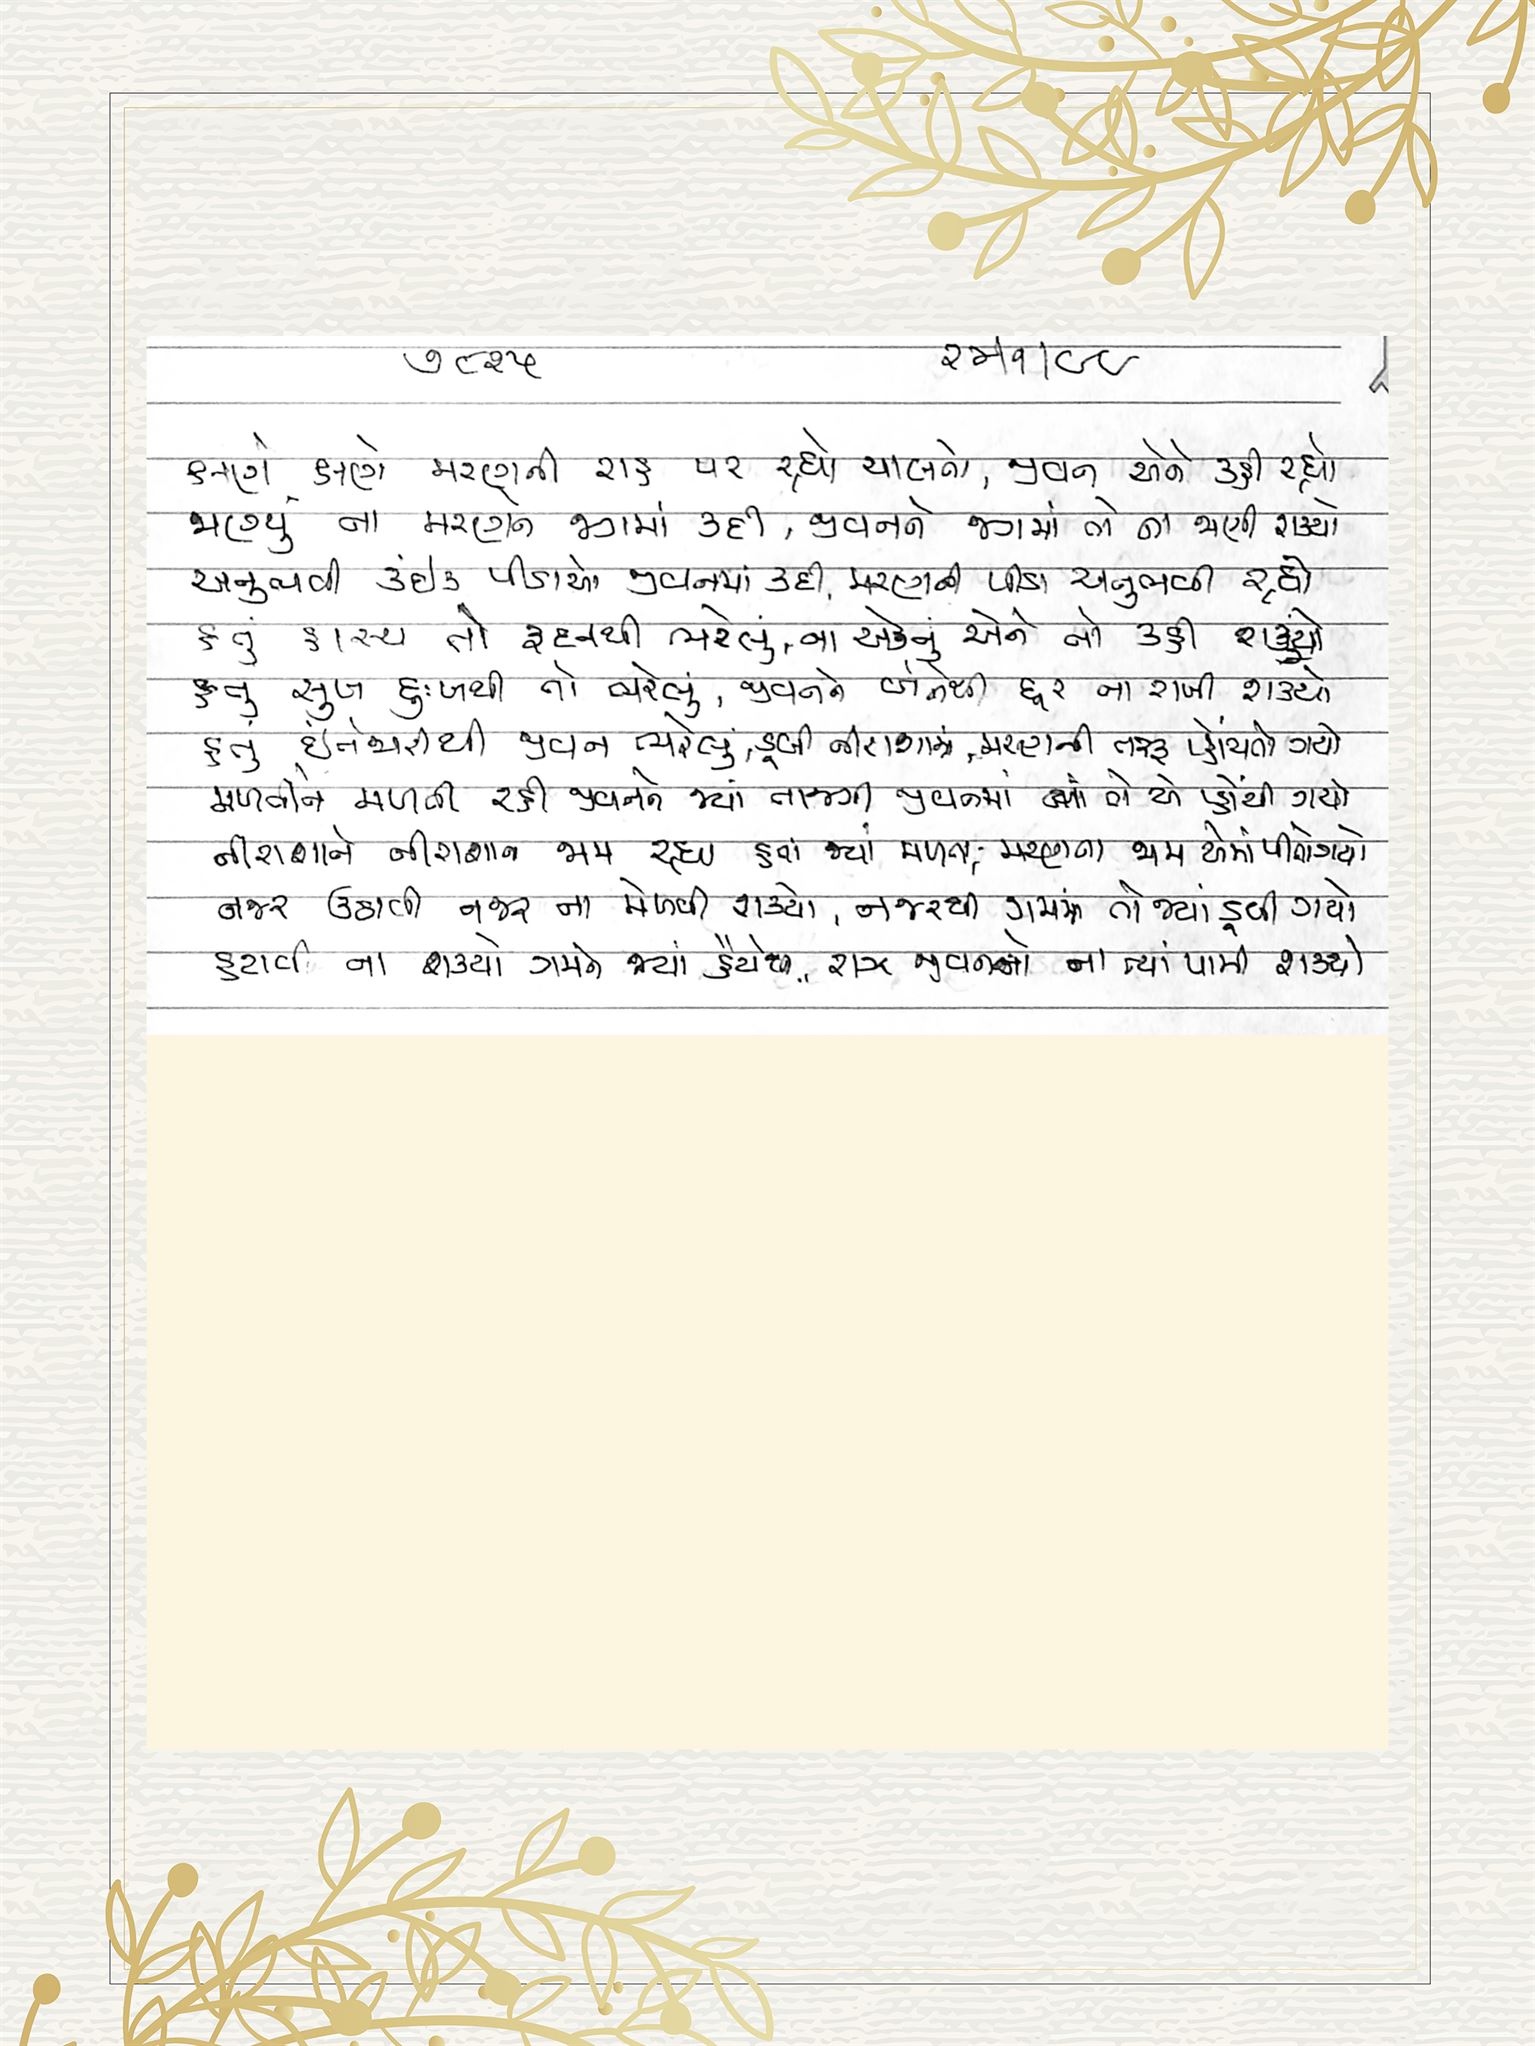 ૭૯૨૫ ૨૪|૧|૯૯
ક્ષણે ક્ષણે મરણની રાહ પર રહ્યો ચાલતો, જીવન એને કહી રહ્યો
જાણ્યું ના મરણને જગમાં કદી, જીવનને જગમાં તો ના જાણી શક્યો
અનુભવી કંઈક પીડાઓ જીવનમાં કદી, મરણની પીડા અનુભવી રહ્યો
હતું હાસ્ય તો રૂદનથી ભરેલું, ના એકેનું એને તો કહી શક્યો
હતું સુખ દુઃખથી તો ભરેલું, જીવનને બંનેથી દૂર ના રાખી શક્યો
હતું ઇંતેજારીથી જીવન ભરેલું, ડૂબી નીરાશામાં, મરણની તરફ પહોંચતો ગયો
મળતીને મળતી રહી જીવનને જ્યાં તાજગી જીવનમાં તો એ પહોંચી ગયો
નીરાશાને નીરાશાના જામ રહ્યા હતા જ્યાં મળતા, મરણના જામ એમાં પીતો ગયો
નજર ઉઠાવી નજર ના મેળવી શક્યો, નજરથી ગમમાં તો જ્યાં ડૂબી ગયો
હટાવી ના શક્યો ગમને જ્યાં હૈયેથી, રાઝ જીવનનો ના ત્યાં પામી શક્યો